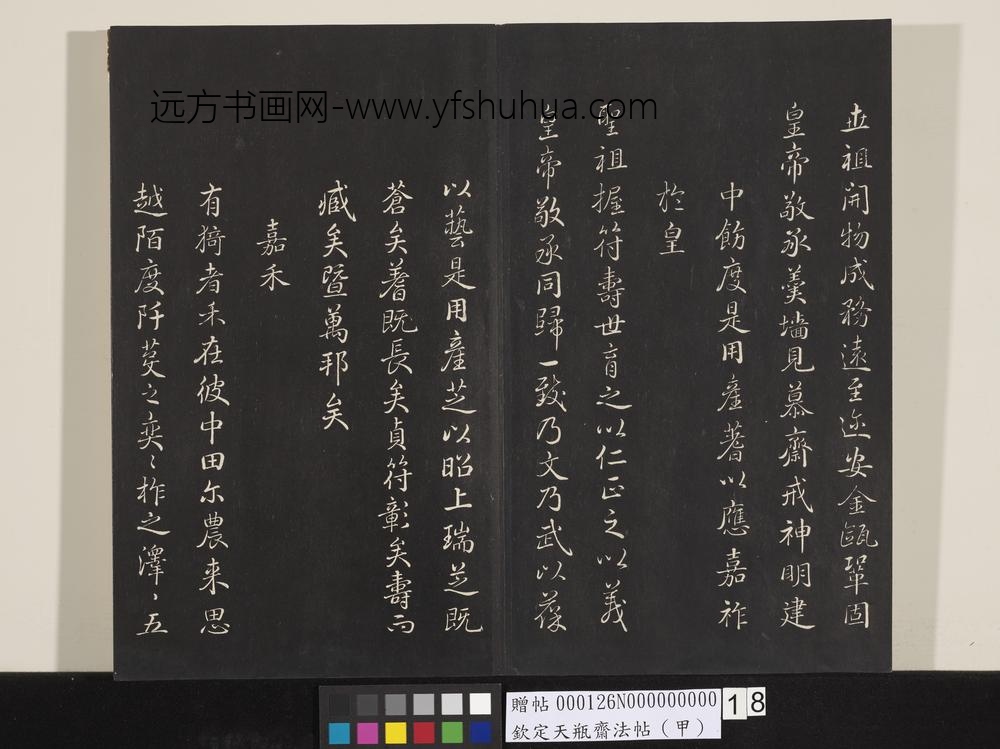 远方书画网-www.yfshuhua.com
世祖開物成務遠至迩安金甌鞏固
皇帝敬承羹墻見慕齋戒神明建
中飭度是用產蓍以應嘉祚
於皇
聖祖握符壽世育之以仁正之以義
皇帝敬承同歸一致乃文乃武以葆
以藝是用產芝以昭上瑞芝既
蒼矣蓍既長矣貞符彰矣壽而
臧矣暨萬邦矣
嘉禾
有猗者禾在彼中田尓農来思
越陌度阡芟之奕〻柞之澤〻五
贈帖 000126N000000000 18
欽定天瓶齋法帖（甲）